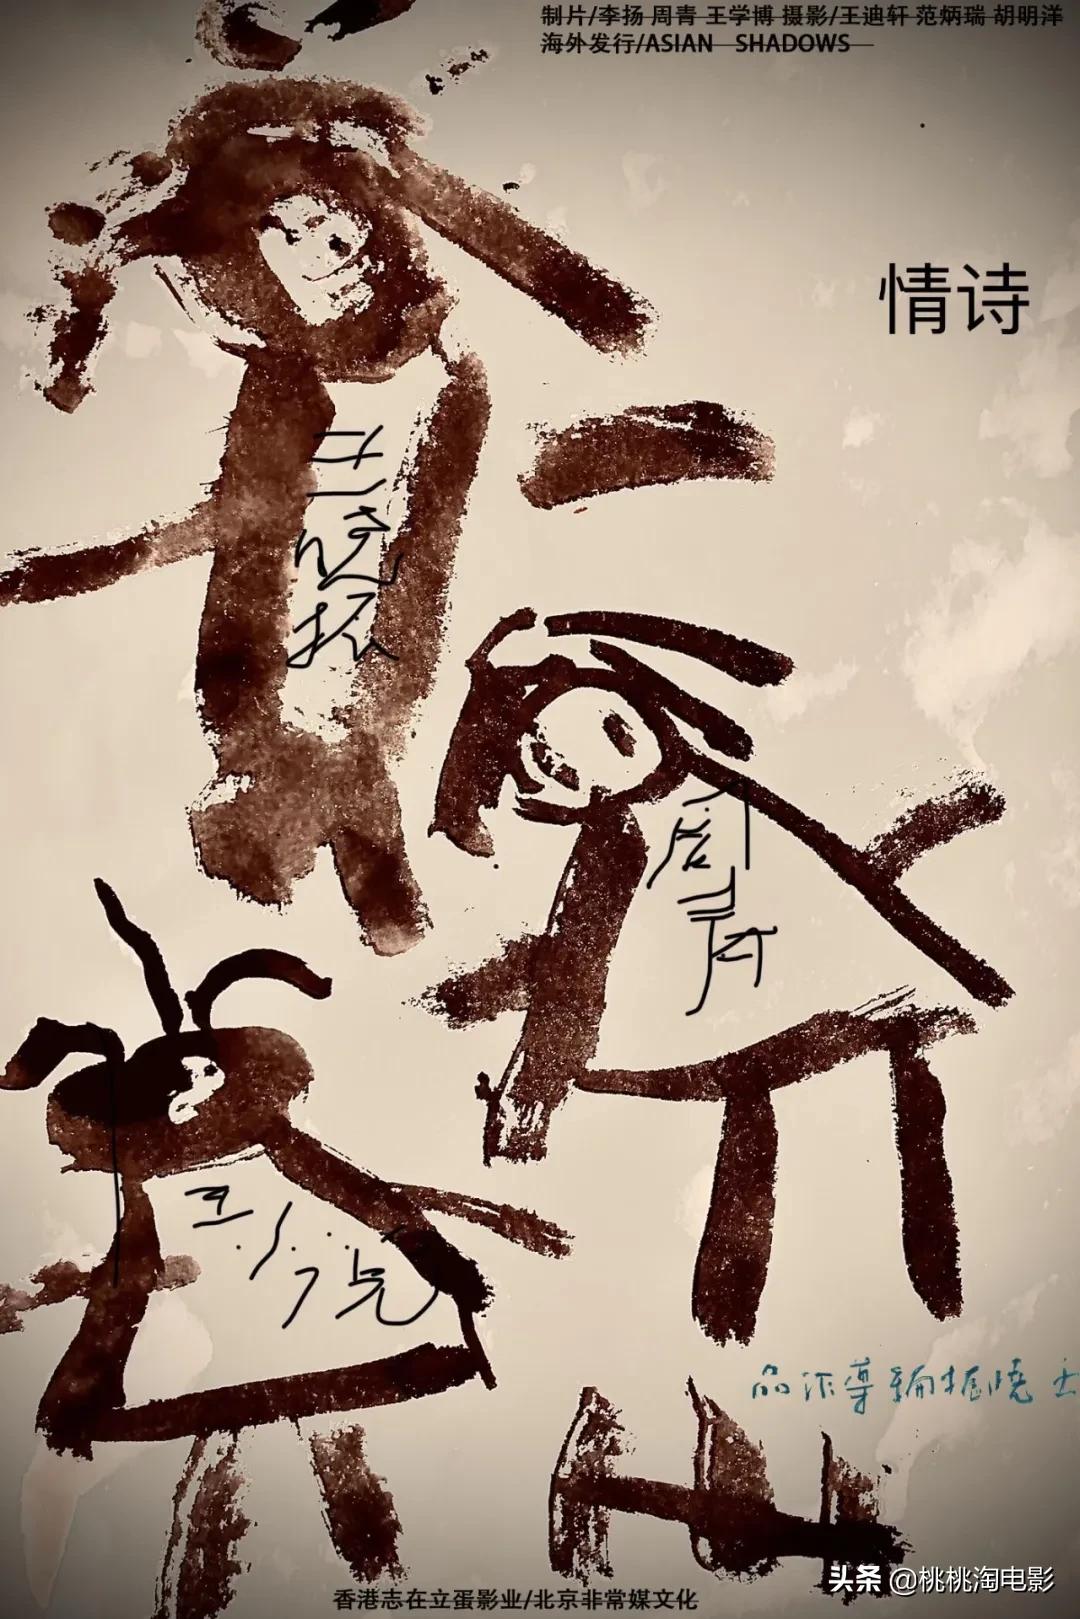 制片/李扬 周青 王学博 摄影/王迪轩 范炳瑞 胡明洋
海外发行/ASIAN SHADOWS
情诗
王晓振
周青
品作導編振曉王
香港志在立蛋影业/北京非常媒文化
头条 @桃桃淘电影